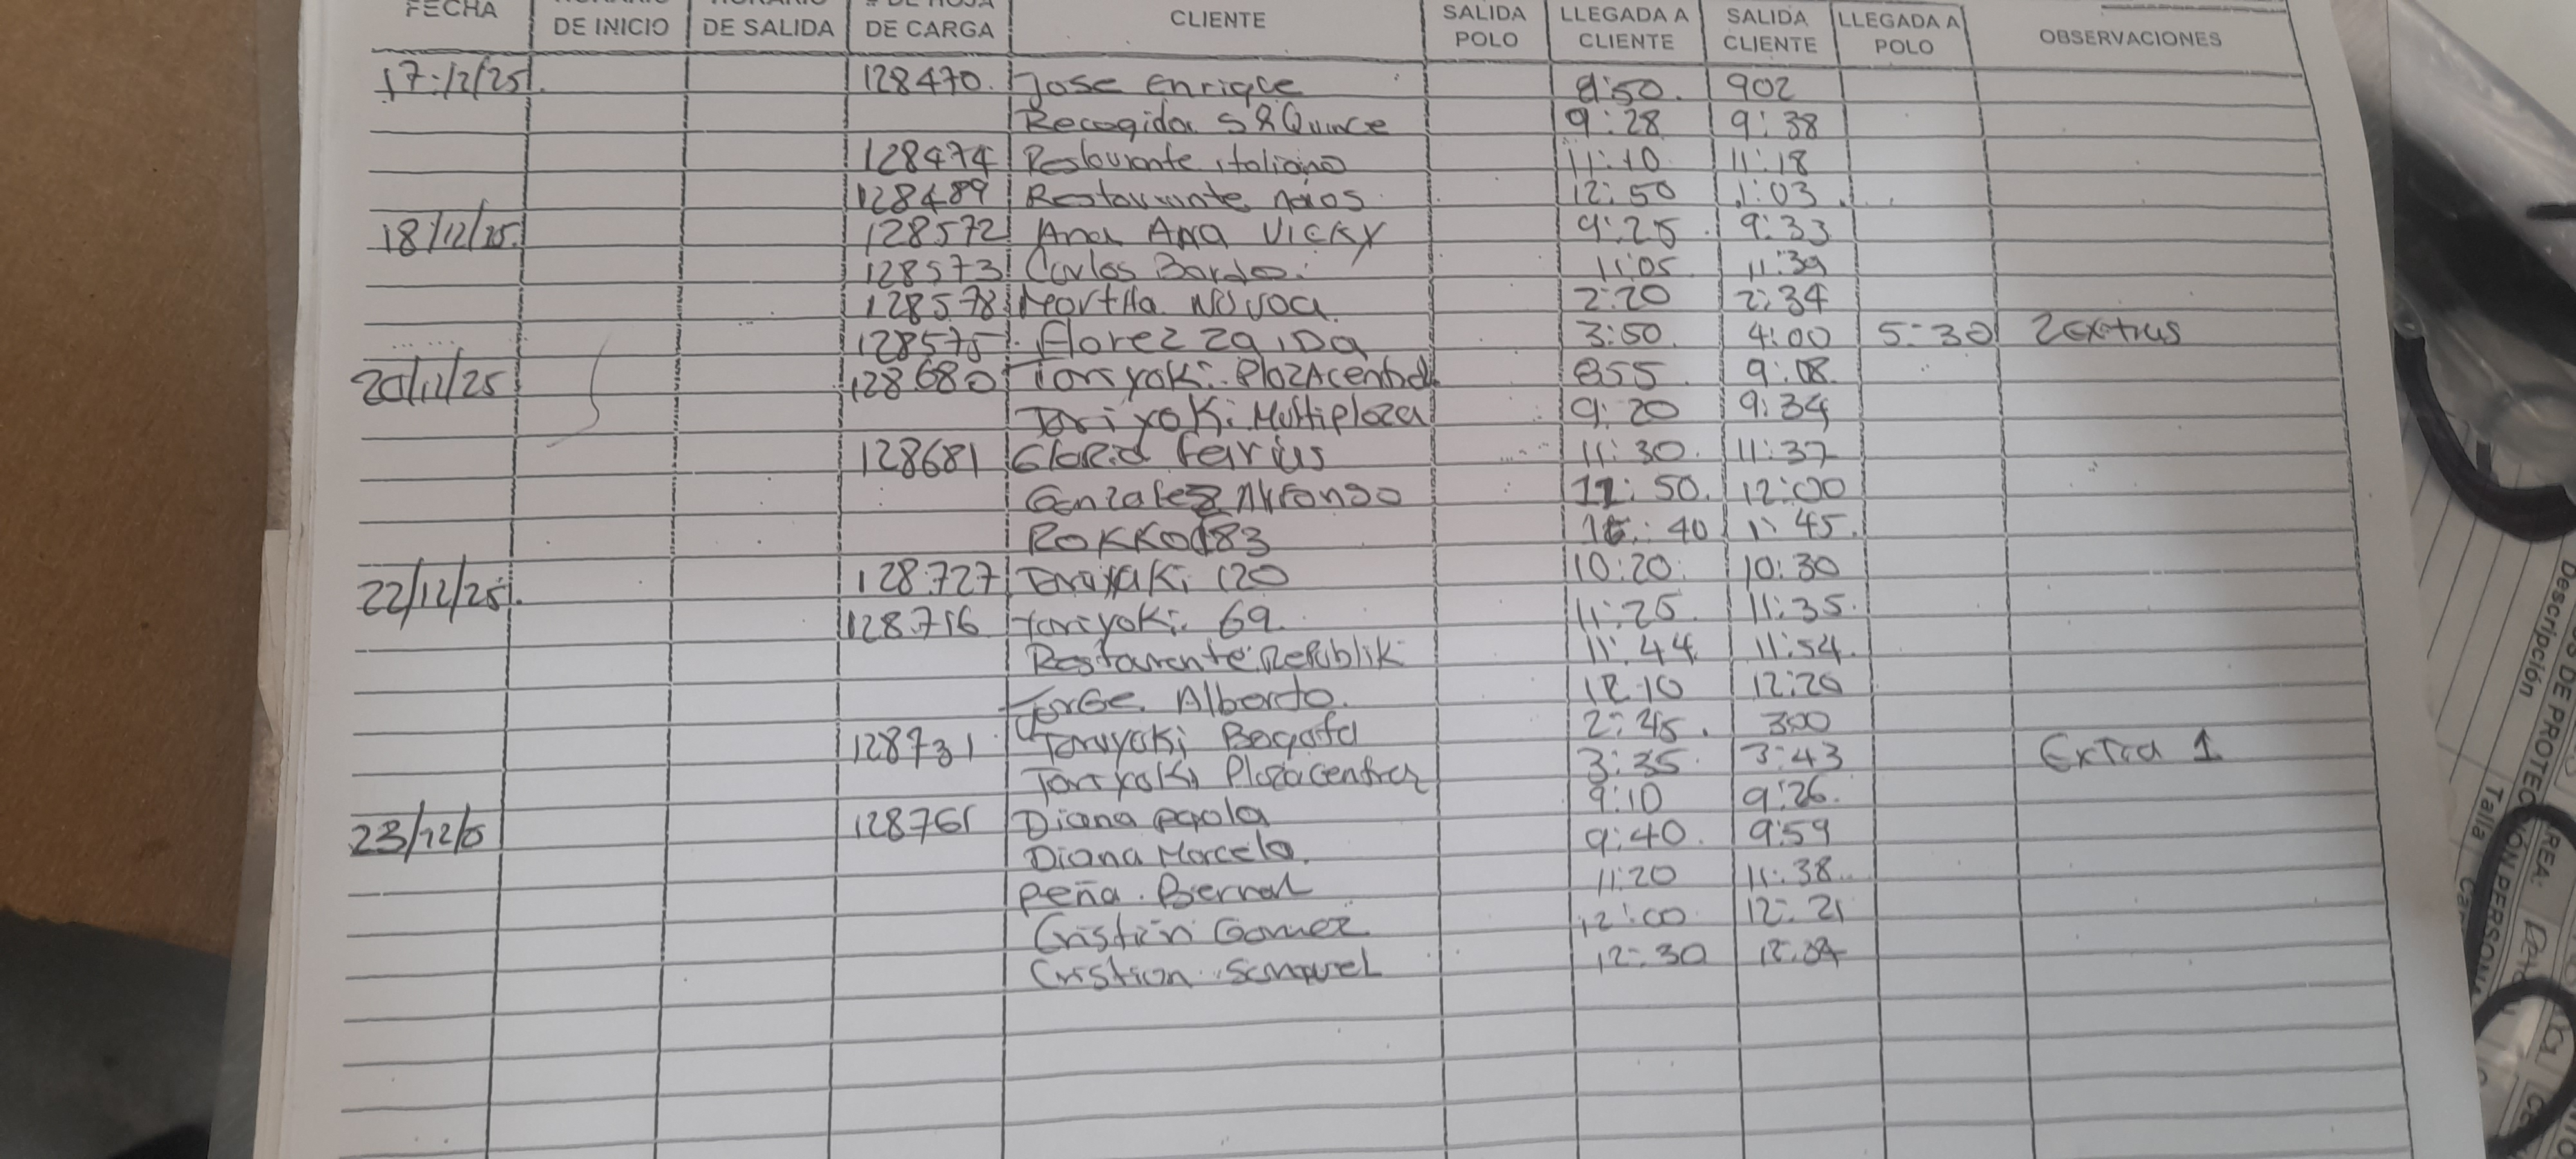 FECHA DE INICIO DE SALIDA DE CARGA CLIENTE SALIDA POLO LLEGADA A CLIENTE SALIDA CLIENTE LLEGADA A POLO OBSERVACIONES
17/12/25 128470 Jose Enrique 8:50 902
Recogida S&Quince 9:28 9:38
128474 Restaurante italiano 11:10 11:18
128489 Restaurante 12:50 1:03
18/12/25 128572 Ana Ana Vicky 9:25 9:33
128573 Carlos 11:05 11:39
128578 Martha Novoa 2:20 2:34
128575 Florez Zaida 3:50 4:00 5:30 2extras
20/12/25 128680 Plaza central 855 9:08
Multiplaza 9:20 9:34
128681 11:30 11:37
Gonzalez Alfonso 11:50 12:00
40 1:45
22/12/25 128727 120 10:20 10:30
128716 69 11:25 11:35
Republik 11:44 11:54
Jorge Alberto 12:10 12:20
128731 Bogota 2:45 300
Plaza central 3:35 3:43 Extra 1
23/12/ 12876 Diana Paola 9:10 9:26
Diana Marcela 9:40 9:59
Peña Bernal 11:20 11:38
Cristian Gomez 12:00 12:21
Cristian 12:30
Descripción
S DE PROTECCIÓN PERSON
Talla
AREA: